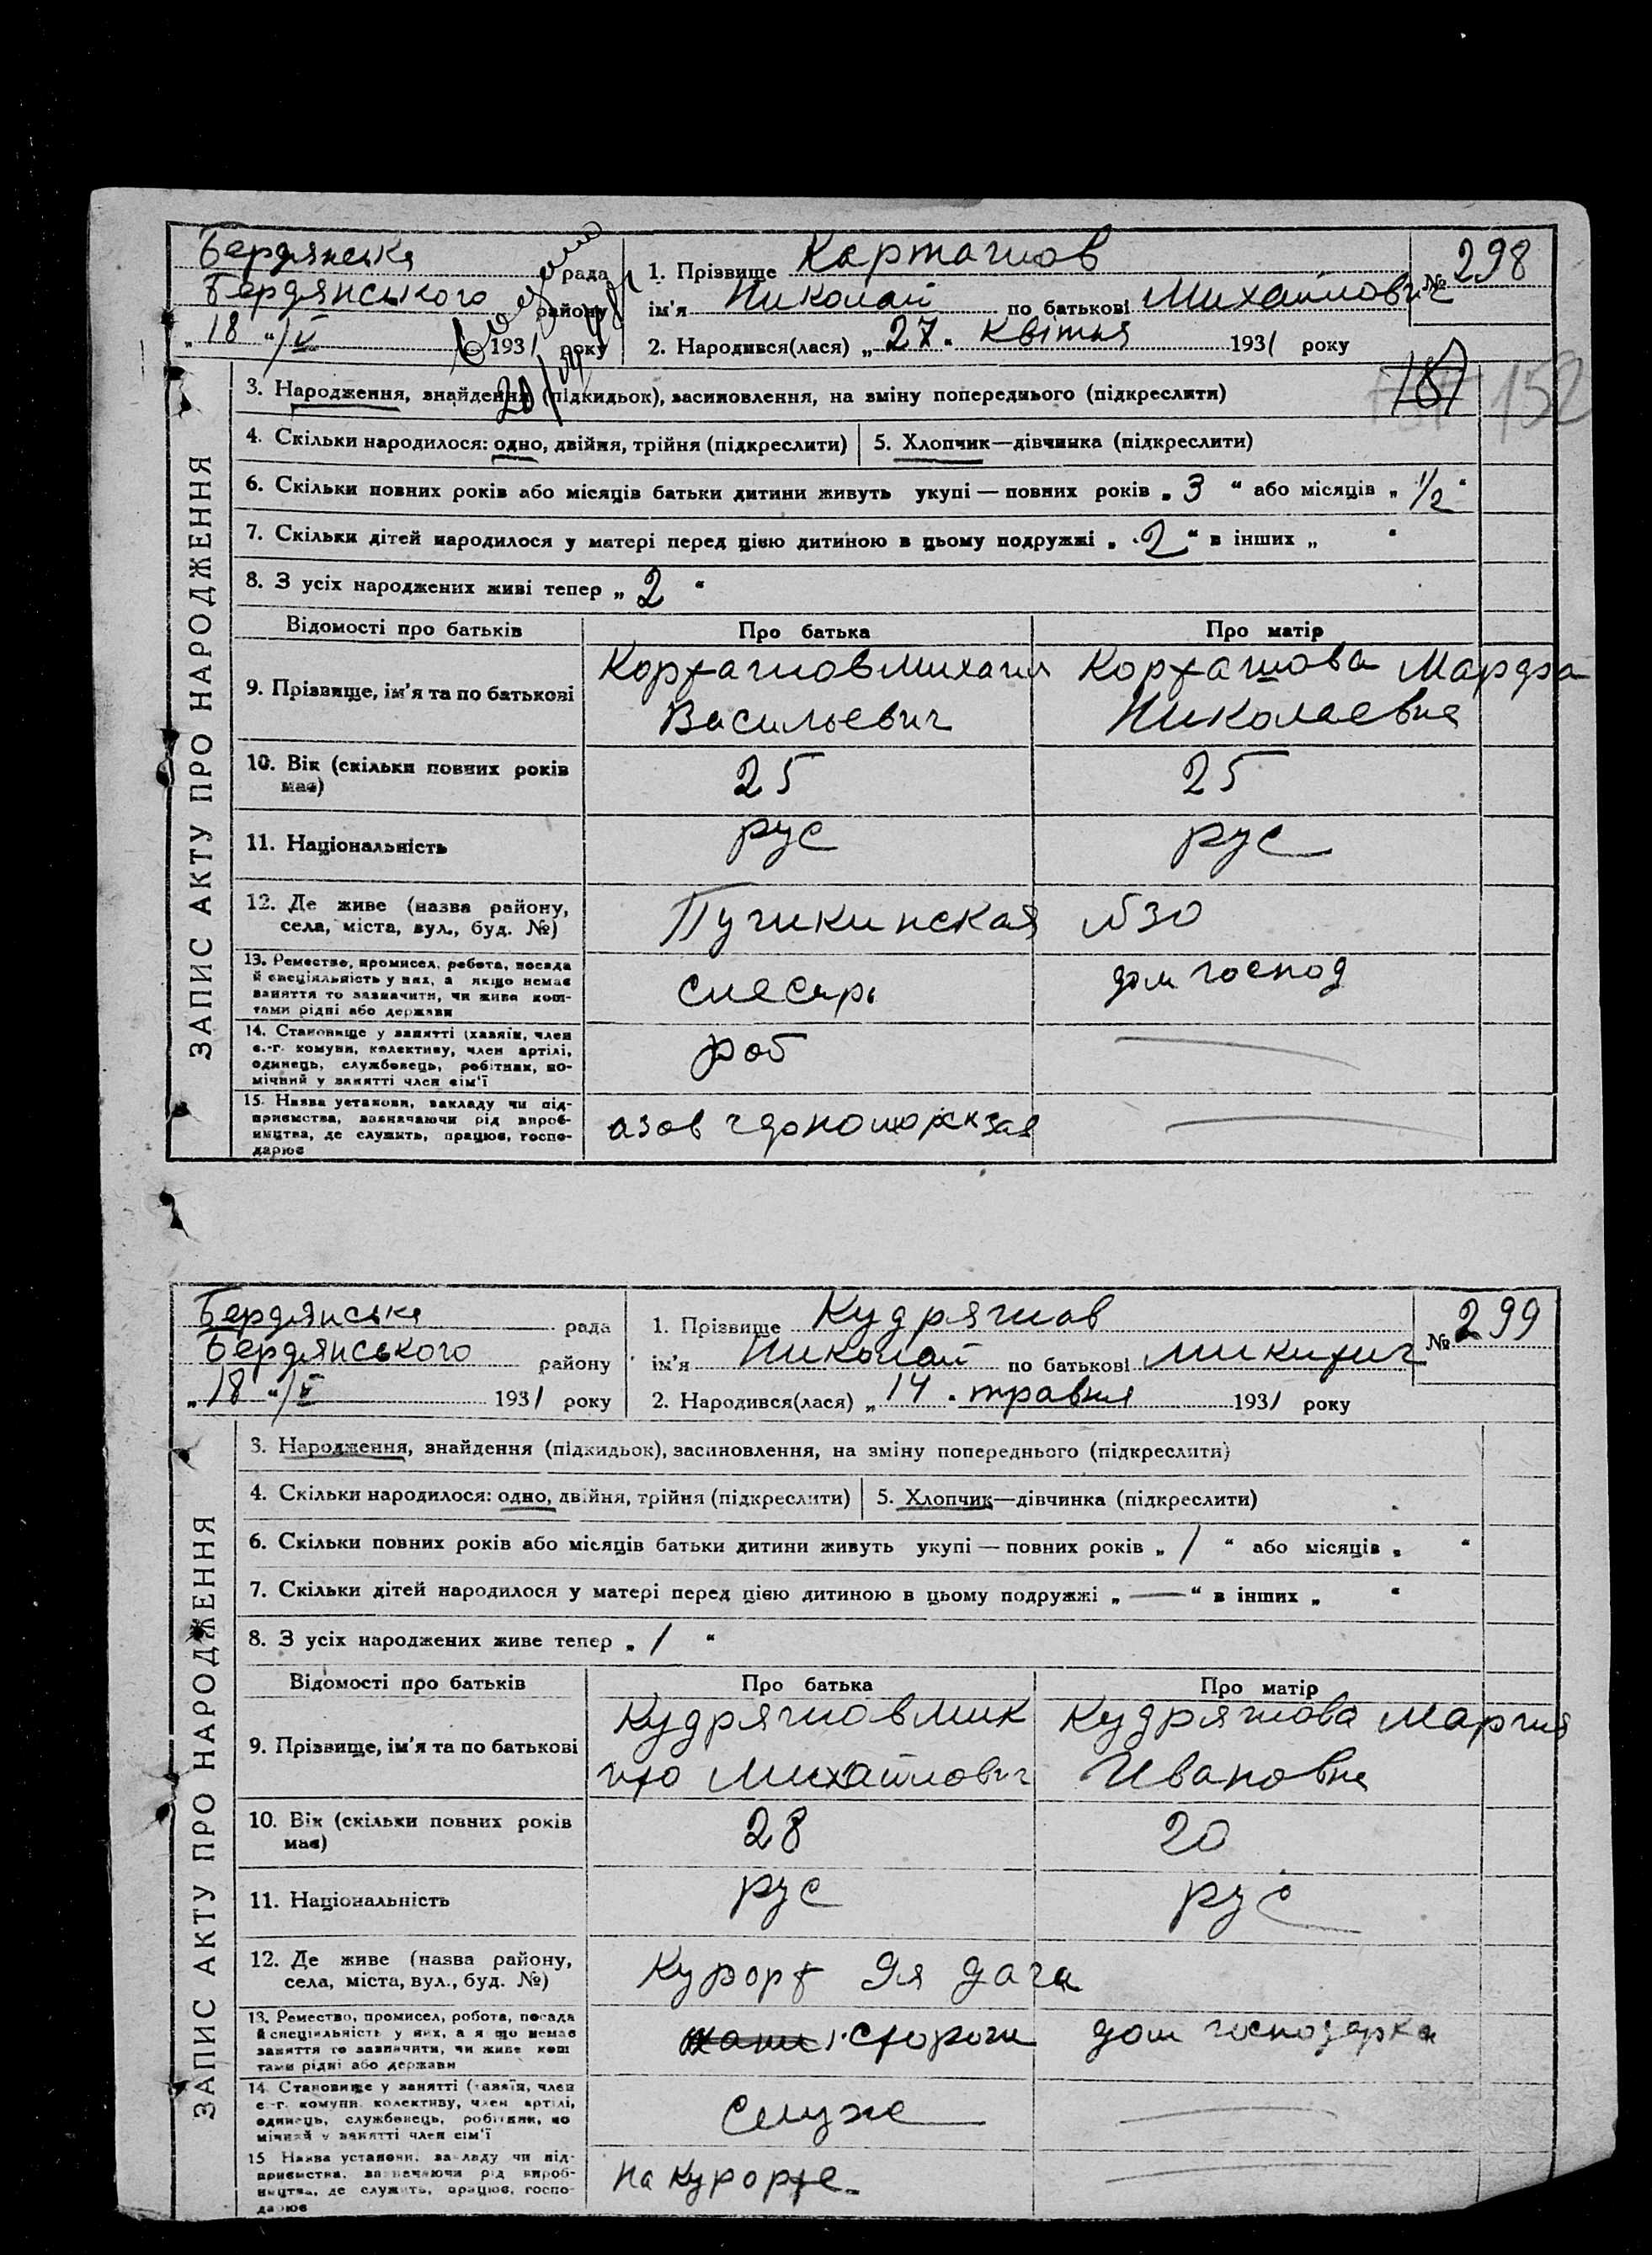 Бердянська рада
Бердянського району
„ 18 “ / V 1931 року
1. Прізвище Карташов
№ 298
ім'я Николай по батькові Михайлович
2. Народився(лася) „ 27 “ квітня 1931 року
ЗАПИС АКТУ ПРО НАРОДЖЕННЯ
3. Народження, знайдення (підкидьок), засиновлення, на зміну попереднього (підкреслити)
152
4. Скільки народилося: одно, двійня, трійня (підкреслити)
5. Хлопчик—дівчинка (підкреслити)
6. Скільки повних років або місяців батьки дитини живуть укупі — повних років „ 3 “ або місяців „ 1/2 “
7. Скільки дітей народилося у матері перед цією дитиною в цьому подружжі „ 2 “ в інших „ “
8. З усіх народжених живі тепер „ 2 “
Відомості про батьків Про батька Про матір
9. Прізвище, ім'я та по батькові
Корташов Михаил
Васильевич
Корташова Марфа
Николаевна
10. Вік (скільки повних років
має)
25 25
11. Національність рус рус
12. Де живе (назва району,
села, міста, вул., буд. №)
Пушкинская №30
13. Ремество, промисел, робота, посада
й спеціяльність у них, а якщо немає
заняття то зазначити, чи живе кош-
тами рідні або держави
слесарь дом господ
14. Становище у занятті (хазяїн, член
с.-г. комуни, колективу, член артілі,
одинець, службовець, робітник, по-
мічний у занятті член сім'ї
роб
15. Назва установи, закладу чи під-
приємства, зазначаючи рід вироб-
ництва, де служить, працює, госпо-
дарює
азов
Бердянська рада
Бердянського району
„ 18 “ / V 1931 року
1. Прізвище Кудряшов
№ 299
ім'я Николай по батькові Микитич
2. Народився(лася) „ 14 “ травня 1931 року
ЗАПИС АКТУ ПРО НАРОДЖЕННЯ
3. Народження, знайдення (підкидьок), засиновлення, на зміну попереднього (підкреслити)
4. Скільки народилося: одно, двійня, трійня (підкреслити)
5. Хлопчик—дівчинка (підкреслити)
6. Скільки повних років або місяців батьки дитини живуть укупі — повних років „ 1 “ або місяців „ “
7. Скільки дітей народилося у матері перед цією дитиною в цьому подружжі „ — “ в інших „ “
8. З усіх народжених живе тепер „ 1 “
Відомості про батьків Про батька Про матір
9. Прізвище, ім'я та по батькові
Кудряшов Мик
ито Михайлович
Кудряшова Мария
Ивановна
10. Вік (скільки повних років
має)
28 20
11. Національність рус рус
12. Де живе (назва району,
села, міста, вул., буд. №)
Курорт 9я дача
13. Ремество, промисел, робота, посада
й спеціяльність у них, а якщо немає
заняття то зазначити, чи живе кош
тами рідні або держави
сторож дом господарка
14. Становище у занятті (хазяїн, член
с.-г. комуни, колективу, член артілі,
одинець, службовець, робітник, по
мічний у занятті член сім'ї
служ
15. Назва установи, закладу чи під-
приємства, зазначаючи рід вироб-
ництва, де служить, працює, госпо-
дарює
на курорте